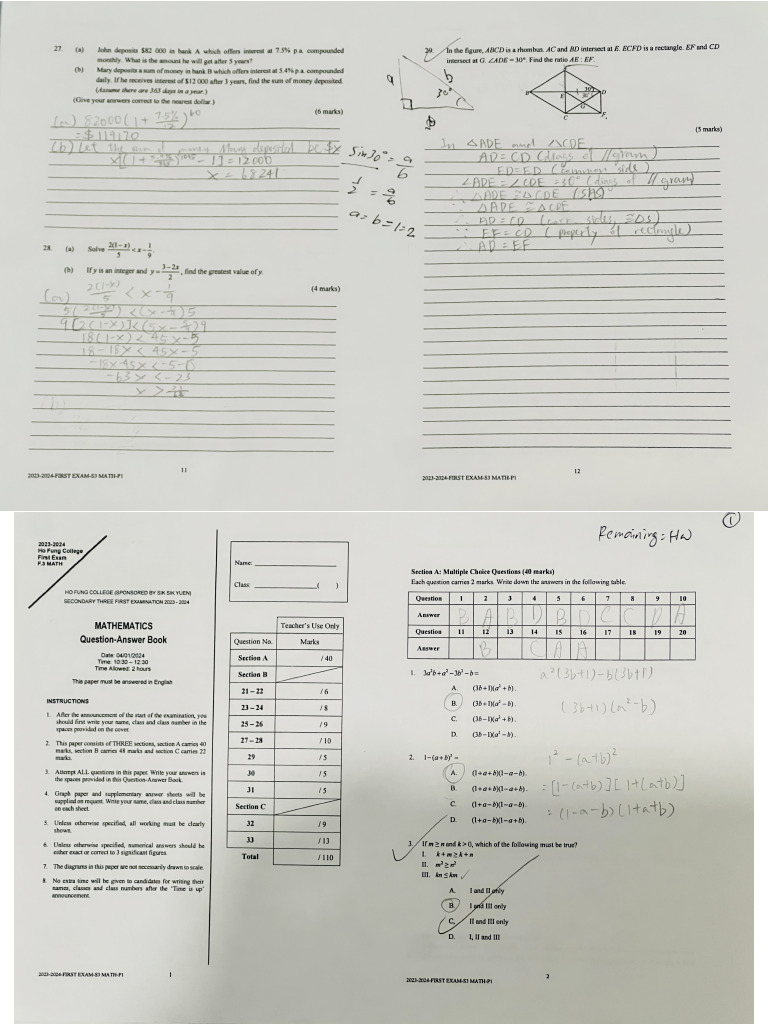 27. (a) John deposits $82 000 in bank A which offers interest at 7.5% p.a. compounded
monthly. What is the amount he will get after 5 years?
(b) Mary deposits a sum of money in bank B which offers interest at 5.4% p.a. compounded
daily. If he receives interest of $12 000 after 3 years, find the sum of money deposited.
(Assume there are 365 days in a year.)
(Give your answers correct to the nearest dollar.)
(6 marks)
(a) 82000(1 + 7.5%/12)^60
= $119170
(b) Let the sum of money Mary deposited be $x
- 1] = 12000
x = 68241
28. (a) Solve 2(1−x)/5 < x − 1/9.
(b) If y is an integer and y = (3−2x)/2, find the greatest value of y.
(4 marks)
(a) 2(1-x)/5 < x - 1/9
9[2(1-x)]<(5x-5/9)9
18(1-x) < 45x-5
18-18x < 45x-5
-18x-45x <-5-18
-63x < -23
x >
(b)
11
2023-2024-FIRST EXAM-S3 MATH-P1
29. In the figure, ABCD is a rhombus. AC and BD intersect at E. ECFD is a rectangle. EF and CD
intersect at G. ∠ADE = 30°. Find the ratio AE : EF.
(5 marks)
a
b
30°
sin30° = a/b
1/2 = a/b
a=b=1=2
A
B
E
30°
D
G
C
F
In △ADE and △CDE
AD=CD (diags of //gram)
ED=ED (common side)
∠ADE = ∠CDE =30° (diags of // gram)
∴ △ADE ≅ △CDE (SAS)
∴ △ADE ≅ △CDE
∴ AD=CD (corr. sides, ≅△s)
∵ EF=CD (property of rectangle)
∴ AD=EF
12
2023-2024-FIRST EXAM-S3 MATH-P1
2023-2024
Ho Fung College
First Exam
F.3 MATH
HO FUNG COLLEGE (SPONSORED BY SIK SIK YUEN)
SECONDARY THREE FIRST EXAMINATION 2023 - 2024
MATHEMATICS
Question-Answer Book
Date: 04/01/2024
Time: 10:30 – 12:30
Time Allowed: 2 hours
This paper must be answered in English
INSTRUCTIONS
1. After the announcement of the start of the examination, you
should first write your name, class and class number in the
spaces provided on the cover.
2. This paper consists of THREE sections, section A carries 40
marks, section B carries 48 marks and section C carries 22
marks.
3. Attempt ALL questions in this paper. Write your answers in
the spaces provided in this Question-Answer Book.
4. Graph paper and supplementary answer sheets will be
supplied on request. Write your name, class and class number
on each sheet.
5. Unless otherwise specified, all working must be clearly
shown.
6. Unless otherwise specified, numerical answers should be
either exact or correct to 3 significant figures.
7. The diagrams in this paper are not necessarily drawn to scale.
8. No extra time will be given to candidates for writing their
names, classes and class numbers after the 'Time is up'
announcement.
Name:
Class: ( )
Teacher's Use Only
Question No. Marks
Section A / 40
Section B
21 – 22 / 6
23 – 24 / 8
25 – 26 / 9
27 – 28 / 10
29 / 5
30 / 5
31 / 5
Section C
32 / 9
33 / 13
Total / 110
2023-2024-FIRST EXAM-S3 MATH-P1
1
1
Remaining = HW
Section A: Multiple Choice Questions (40 marks)
Each question carries 2 marks. Write down the answers in the following table.
Question 1 2 3 4 5 6 7 8 9 10
Answer B A B D B D C C D A
Question 11 12 13 14 15 16 17 18 19 20
Answer B C A A
1. 3a²b + a² − 3b² − b =
A. (3b+1)(a²+b).
B. (3b+1)(a²−b).
C. (3b−1)(a²+b).
D. (3b−1)(a²−b).
a²(3b+1)-b(3b+1)
(3b+1)(a²-b)
2. 1−(a+b)² =
A. (1+a+b)(1−a−b).
B. (1+a+b)(1−a+b).
C. (1+a−b)(1−a−b).
D. (1+a−b)(1−a+b).
1² - (a+b)²
= [1-(a+b)][1+(a+b)]
= (1-a-b)(1+a+b)
3. If m ≥ n and k > 0, which of the following must be true?
I. k + m ≥ k + n
II. m² ≥ n²
III. kn ≤ km
A. I and II only
B. I and III only
C. II and III only
D. I, II and III
2
2023-2024-FIRST EXAM-S3 MATH-P1